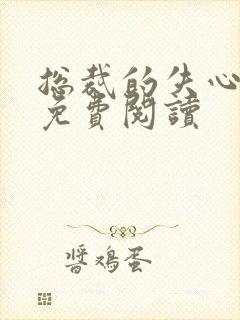 总裁的失心
免費閱讀
醬鸡蛋